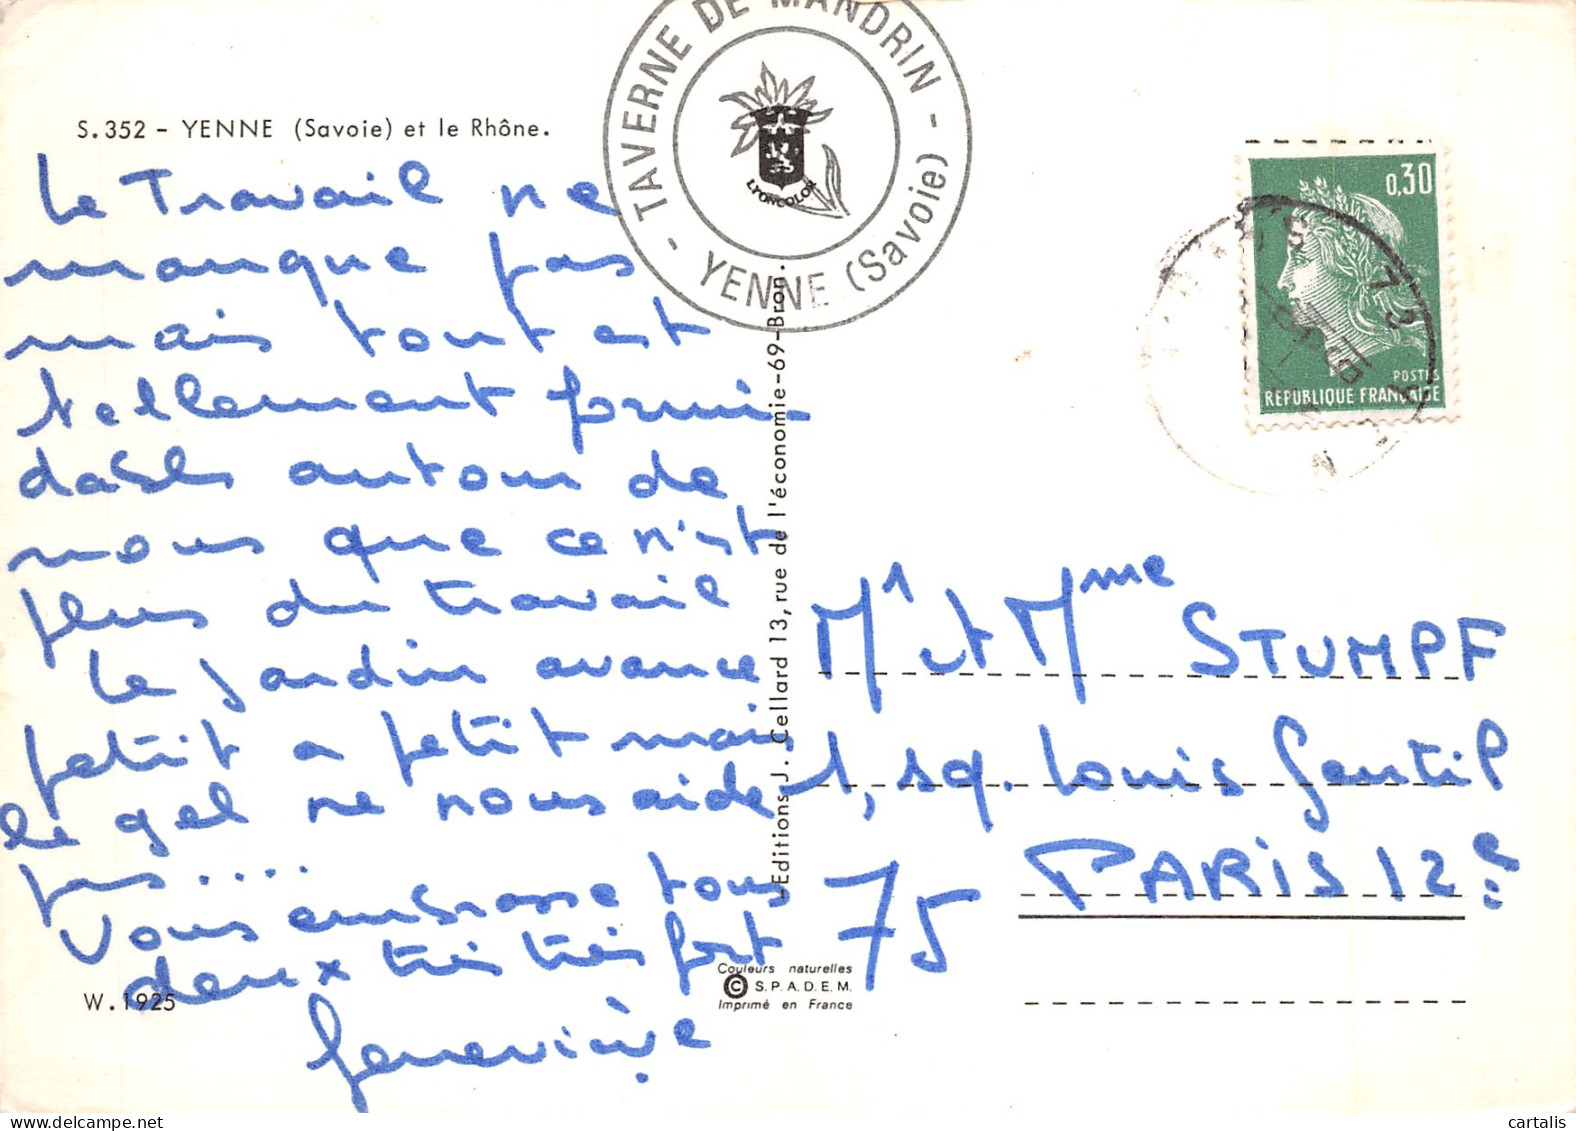 S.352 - YENNE (Savoie) et le Rhône.
TAVERNE DE MANDRIN - YENNE (Savoie) -
LYONCOLOR
0,30
POSTES
REPUBLIQUE FRANÇAISE
73
Le Travail ne
manque pas
mais tout est
tellement formi-
dable autour de
nous que ce n'est
plus du travail
Le jardin avance
petit a petit mais
le gel ne nous aide
pas....
Vous embrasse tous
deux très très fort
Geneviève
Editions J. Cellard 13, rue de l'économie-69-Bron.
Mr et Mme STUMPF
1, sq. Louis Gentil
PARIS 12e
75
W.1925
Couleurs naturelles
© S.P.A.D.E.M.
Imprimé en France
cartalis